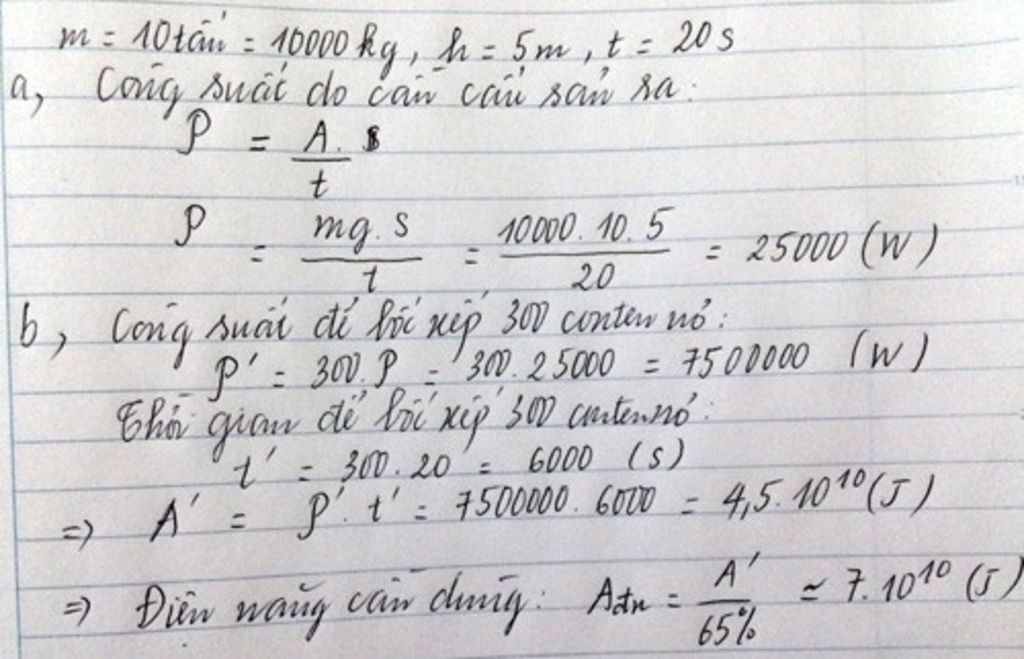 m = 10 tấn = 10000 kg, h = 5m, t = 20 s
a, Công suất do cần cẩu sản ra:
P = A. s / t
P = mg. s / t = 10000. 10. 5 / 20 = 25000 (W)
b, Công suất để bốc xếp 300 contennơ:
P' = 300. P = 300. 25000 = 7500000 (W)
Thời gian để bốc xếp 300 contennơ:
t' = 300. 20 = 6000 (s)
=> A' = P'. t' = 7500000. 6000 = 4,5. 10¹⁰ (J)
=> Điện năng cần dùng: Ađn = A' / 65% ≃ 7. 10¹⁰ (J)